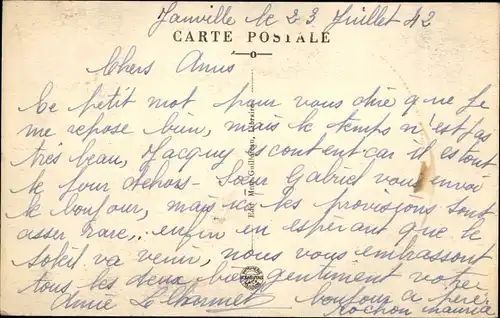 Janville le 23 Juillet 42
CARTE POSTALE
Chers Amis
Ce petit mot pour vous dire que Je
me repose bien, mais le temps n'est pas
très beau, Jacquy content car il est tout
le jour dehors - Sœur Gabriel vous envoi
le bonjour, mais ici les provisions sont
asser rare, enfin en espérant que le
soleil va venir, nous vous embrassons
tous les deux bien gentiment votre
Amie bonjour a père
Rochon maurice
Edit.